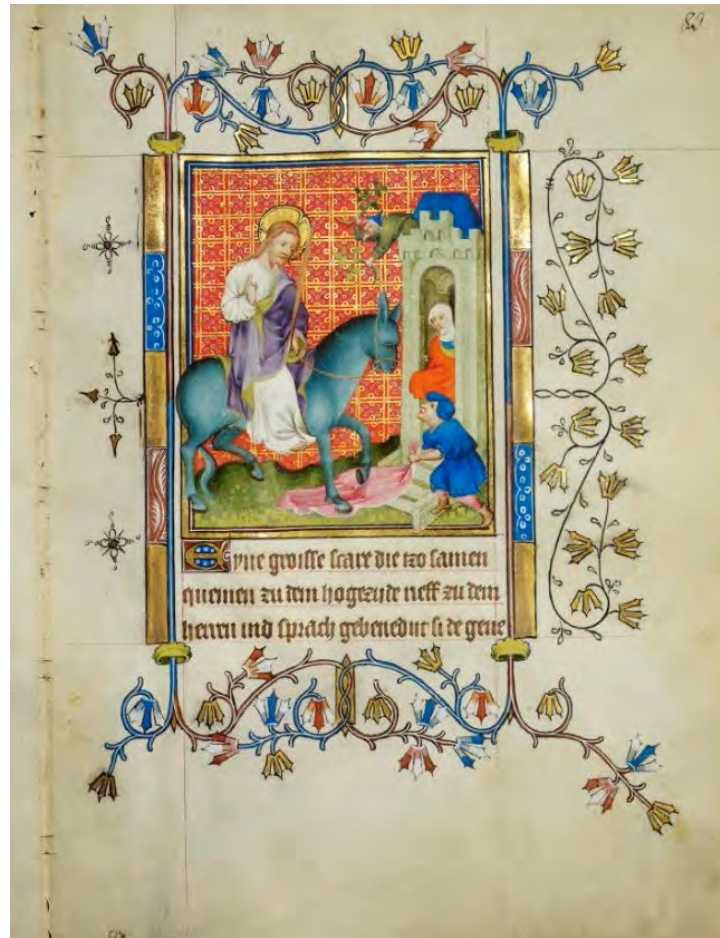 Eyne groisse scare die tzo samen
quemen zu dem hogezyde rieff zu dem
herren ind sprach gebenedijt si de gene